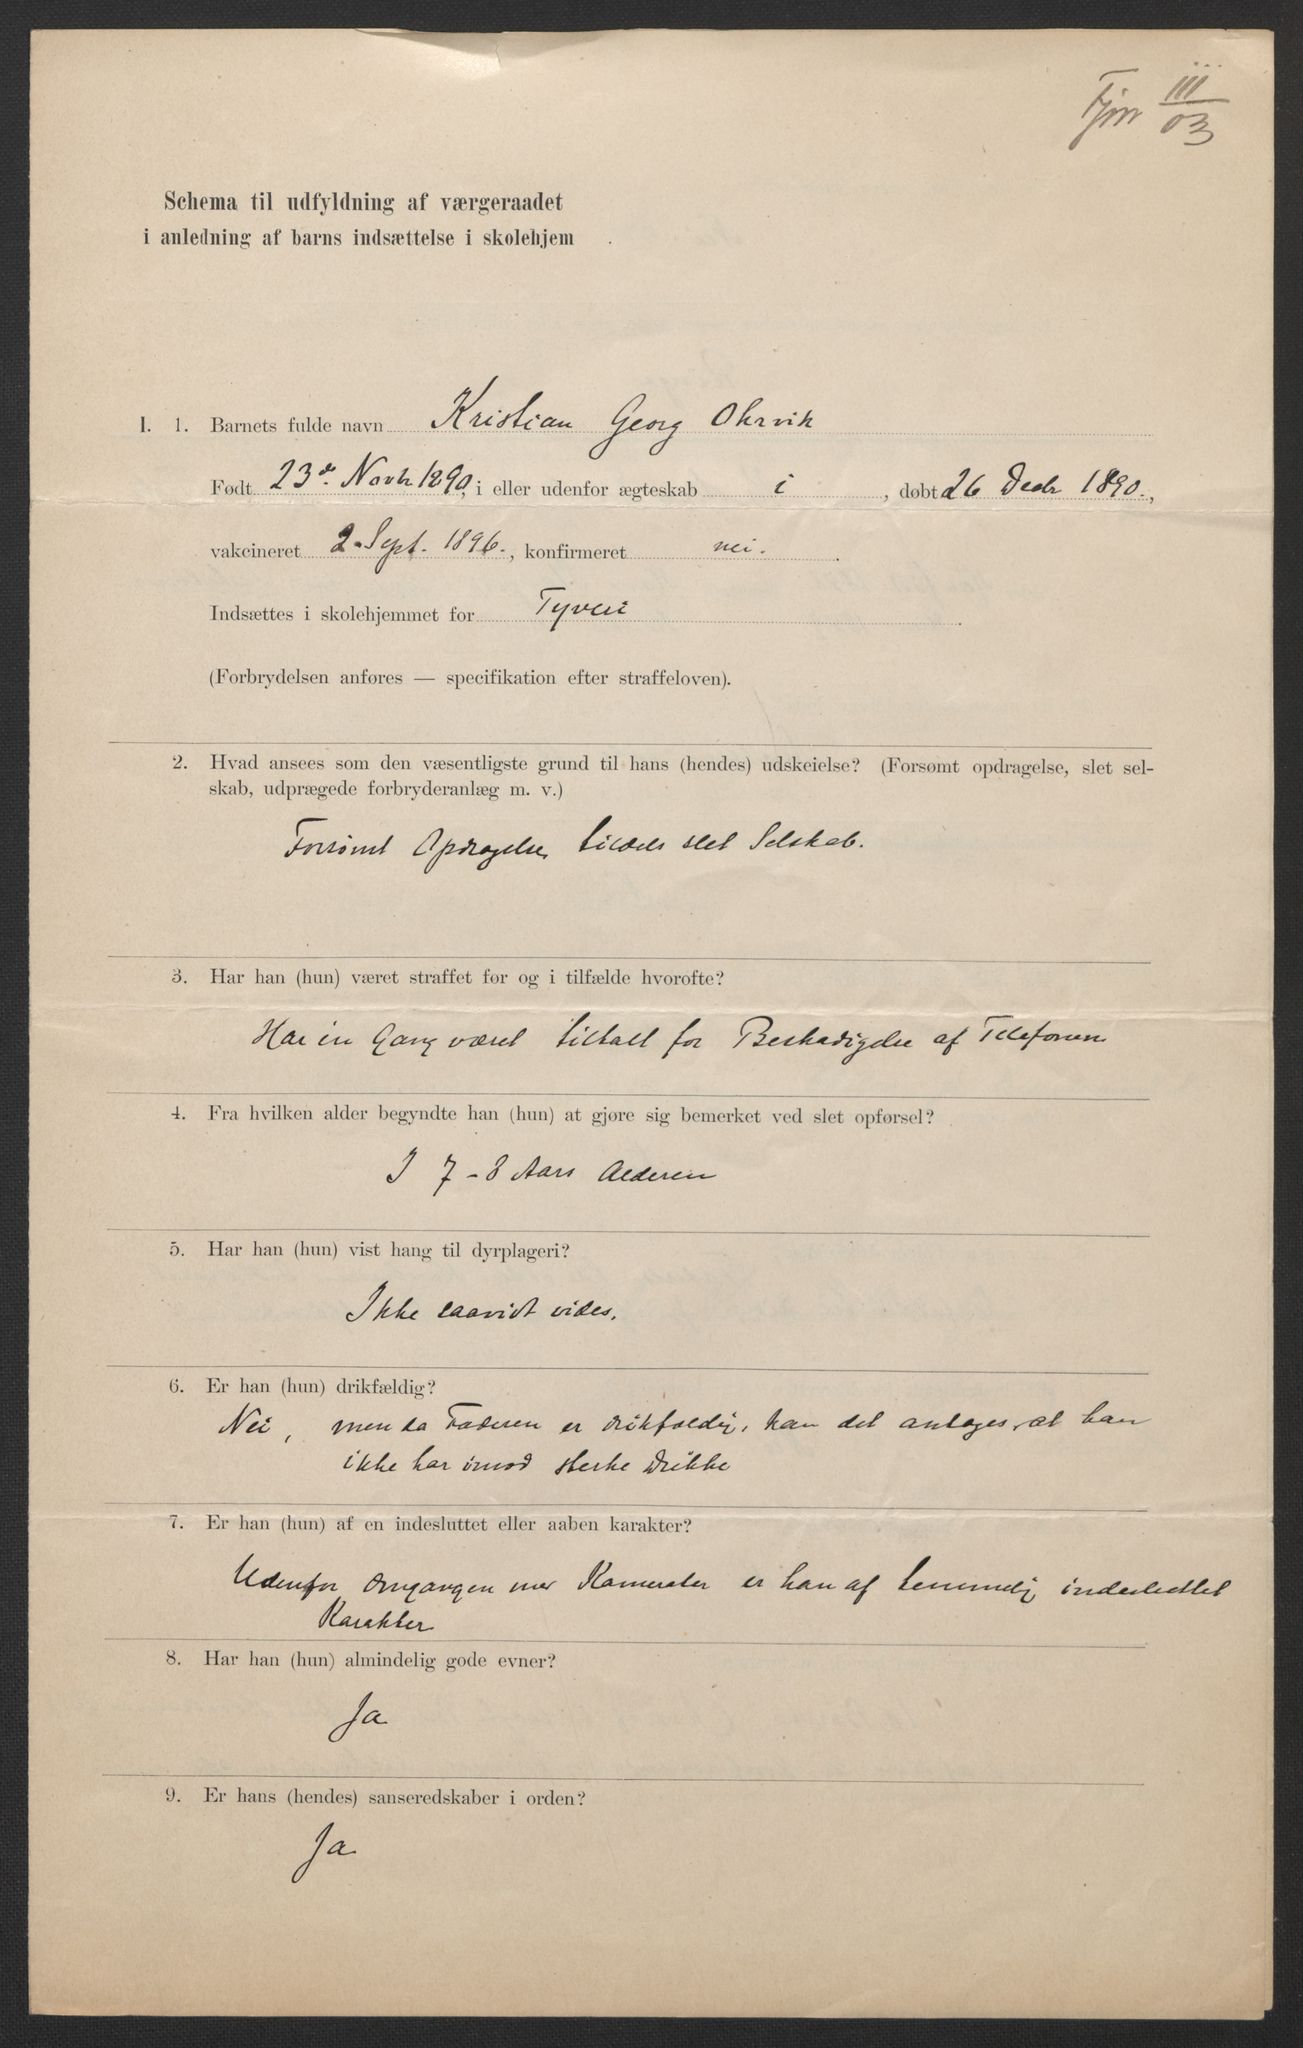 Fjm III/03
Schema til udfyldning af værgeraadet
i anledning af barns indsættelse i skolehjem
I. 1. Barnets fulde navn Kristian Georg Ohrvik
Født 23de Novbr 1890, i eller udenfor ægteskab i, døbt 26 Decbr 1890.,
vakcineret 2. Sept. 1896., konfirmeret nei.
Indsættes i skolehjemmet for Tyveri
(Forbrydelsen anføres — specifikation efter straffeloven).
2. Hvad ansees som den væsentligste grund til hans (hendes) udskeielse? (Forsømt opdragelse, slet sel-
skab, udprægede forbryderanlæg m. v.)
Forsømt Opdragelse, tildels slet Selskab.
3. Har han (hun) været straffet før og i tilfælde hvorofte?
Har en Gang været tiltalt for Beskadigelse af Telefonen
4. Fra hvilken alder begyndte han (hun) at gjøre sig bemerket ved slet opførsel?
I 7-8 Aars Alderen
5. Har han (hun) vist hang til dyrplageri?
Ikke saavidt vides.
6. Er han (hun) drikfældig?
Nei, men da Faderen er drikfældig, kan det antages, at han
ikke har imod sterke Drikke
7. Er han (hun) af en indesluttet eller aaben karakter?
Udenfor Omgangen med Kamerater er han af temmelig indesluttet
Karakter
8. Har han (hun) almindelig gode evner?
Ja
9. Er hans (hendes) sanseredskaber i orden?
Ja